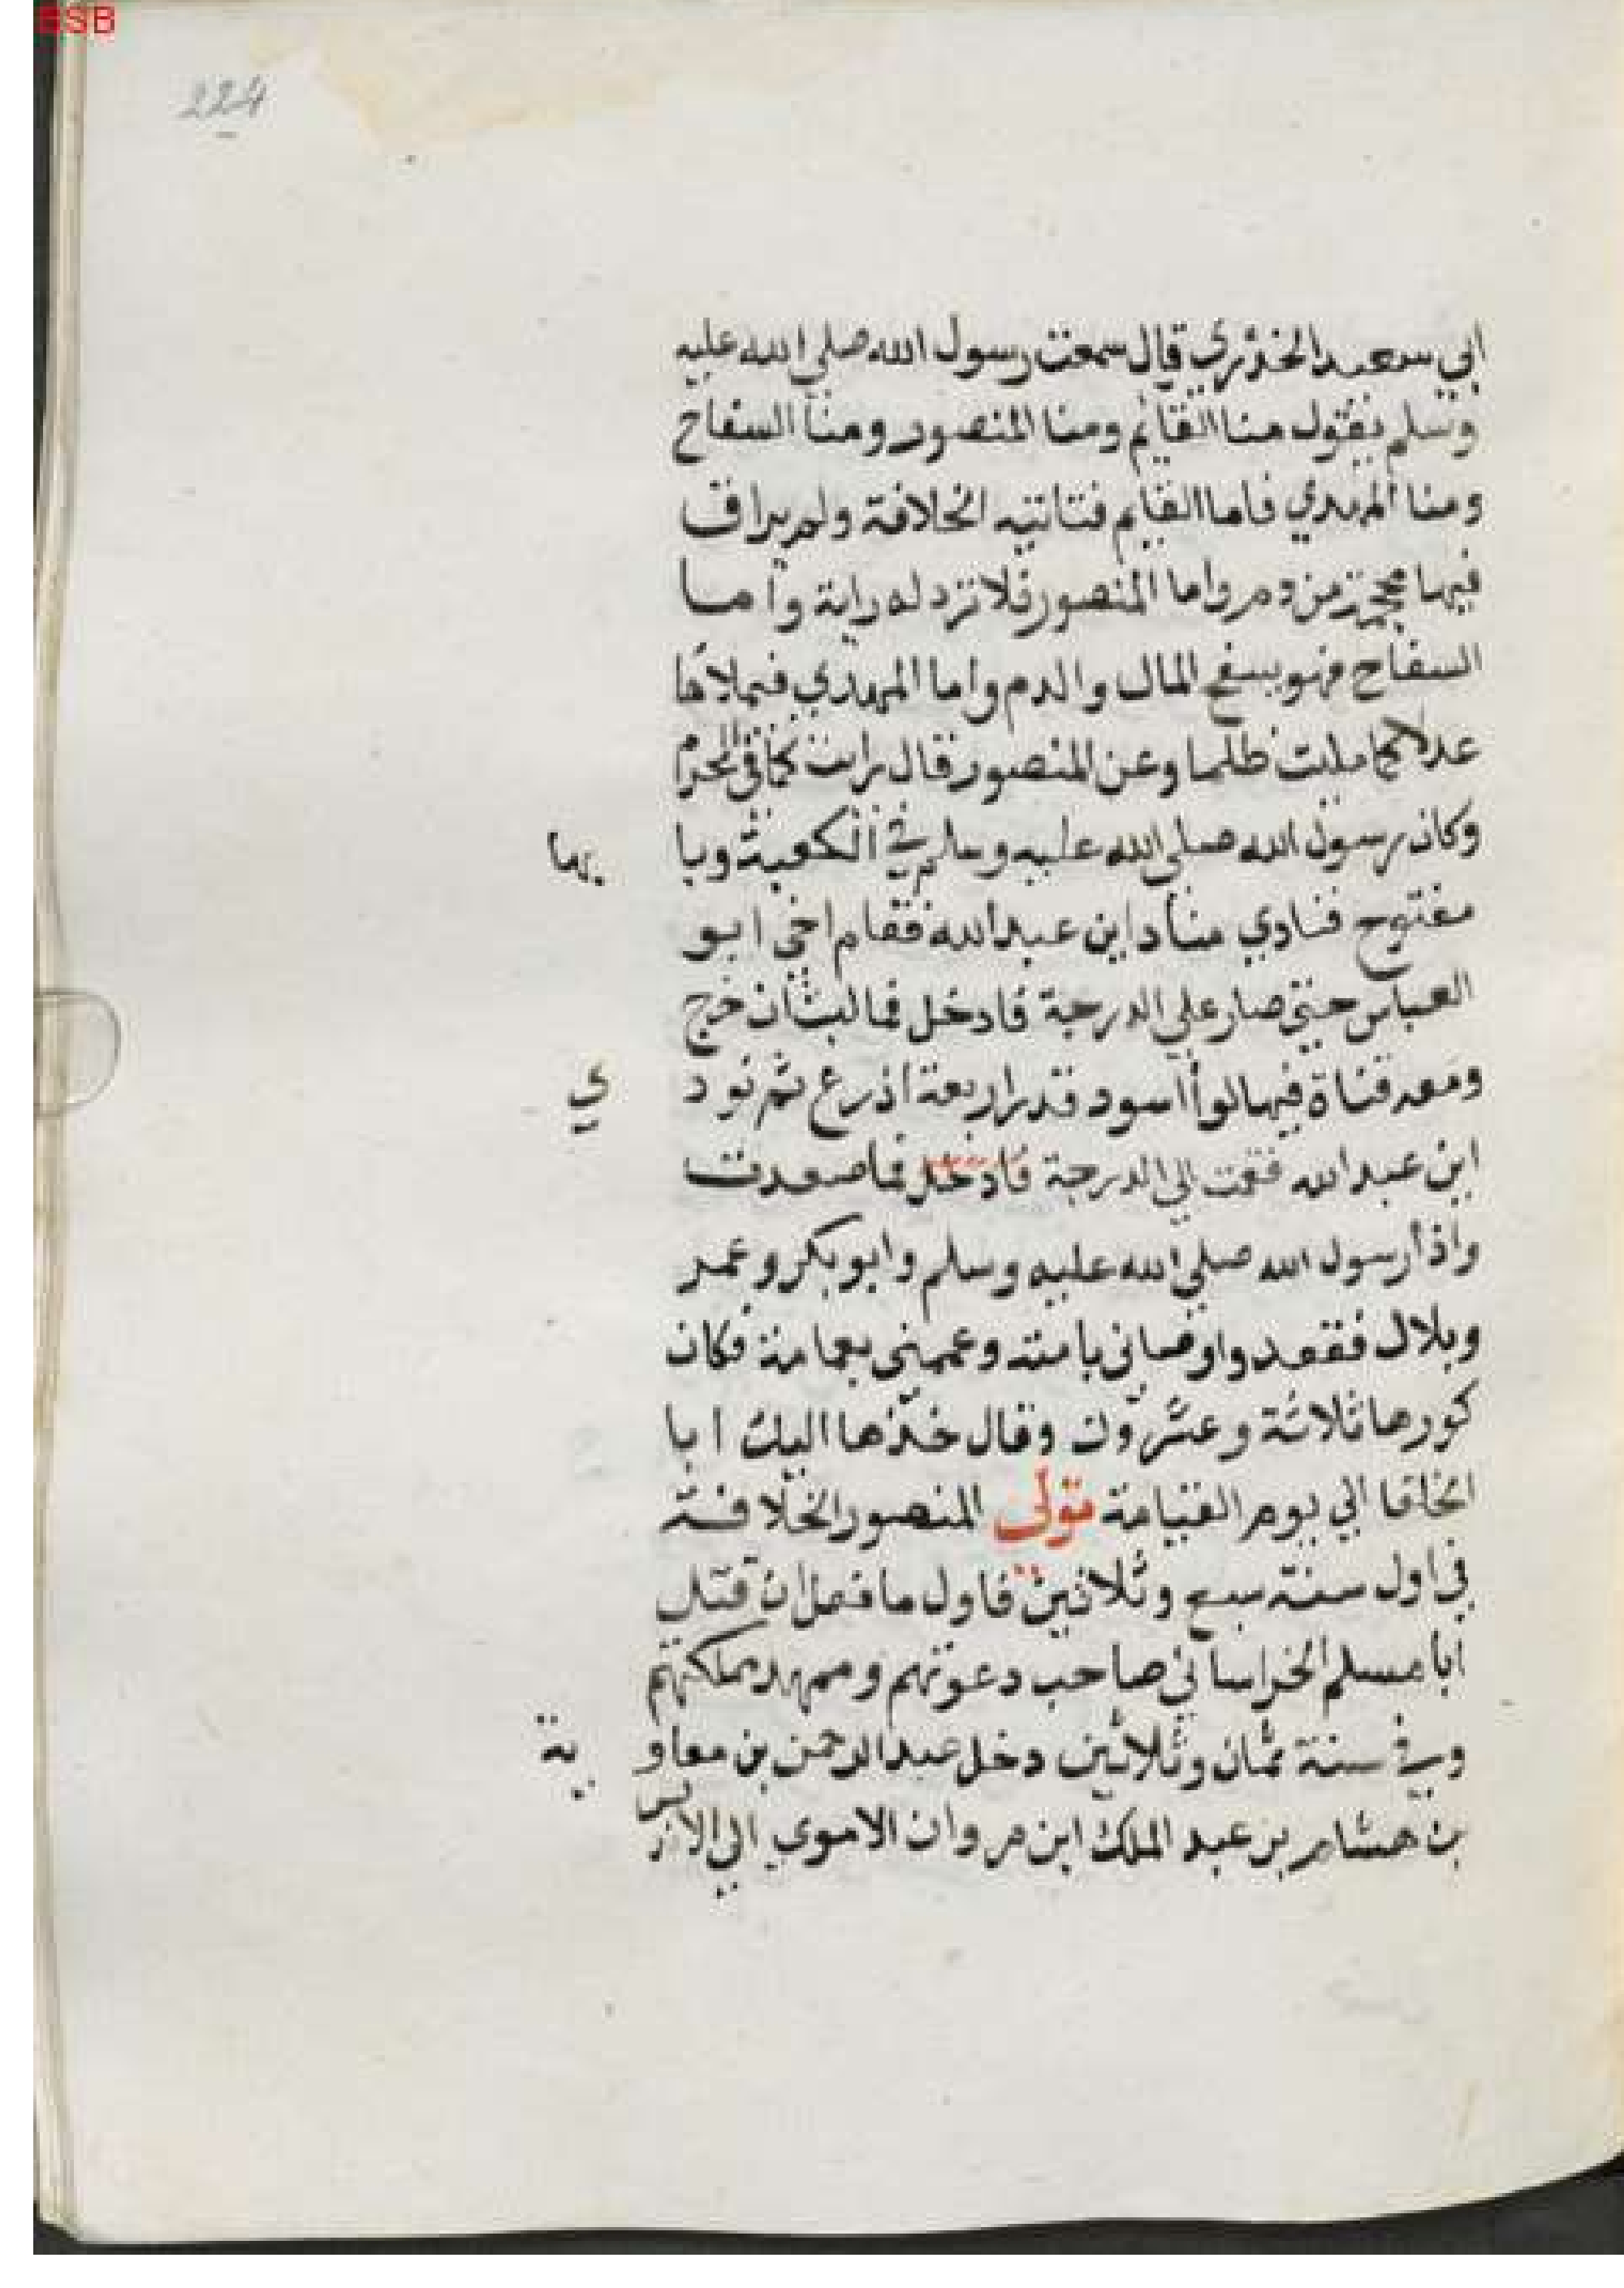 BSB
224
ابي سعيد الخذري قال سمعت رسول الله صلي الله عليه
وسلم يقول منا القائم ومنا المنصور ومنا السفاح
ومنا المهدي فاما القايم فتاتيه الخلافة ولم يراق
فيها محجزة من دم واما المنصور فلا ترد له راية واما
السفاح فهو يسفح المال والدم واما المهدي فيملاها
عدلا كما مليت ظلما وعن المنصور قال رايت كاني في الحرم
وكان رسول الله صلي الله عليه وسلم في الكعبة وبا بها
مفتوح فنادي مناد اين عبد الله فقام اخي ابو
العباس حتي صار علي الدرجة فادخل فما لبث ان خرج
ومعه قناة فيها لوأ اسود قدر اربعة اذرع ثم نود ي
اين عبد الله فقمت الي الدرجة فادخل فاصعدت
واذا رسول الله صلي الله عليه وسلم وابو بكر وعمر
وبلال فقعد واوصاني بامته وعممني بعمامة فكان
كورها ثلاثة وعشرون وقال خذها اليك ابا
الخلفا الي يوم القيامة تولى المنصور الخلافة
في اول سنة سبع وثلاثين فاول ما فعل ان قتل
ابا مسلم الخراساني صاحب دعوتهم وممهد مملكتهم
وفي سنة ثمان وثلاثين دخل عبد الرحمن بن معاو ية
بن هشام بن عبد الملك ابن مروان الاموي الي الاندلس